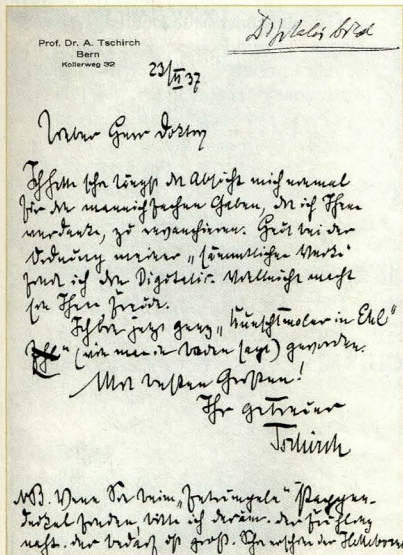 Digitalis bild
Prof. Dr. A. Tschirch
Bern
Kollerweg 32
23/VI 37
Lieber Herr Doktor
Ich hatte schon längst die Absicht mich einmal
für die mannichfachen Gaben, die ich Ihnen
verdanke, zu revanchieren. Heut bei der
Ordnung meiner „sämmtlichen Werke“
fand ich die Digitalis. Vielleicht macht
sie Ihnen Freude.
Ich bin jetzt ganz „Kunschtmoler in Eel“
(wie man in Baden sagt) geworden.
Mit besten Grüssen!
Ihr getreuer
Tschirch
NB. Wenn Sie beim Pappen-
deckel finden, bitte ich darum. der Frühling
naht. der Bedarf ist groß.